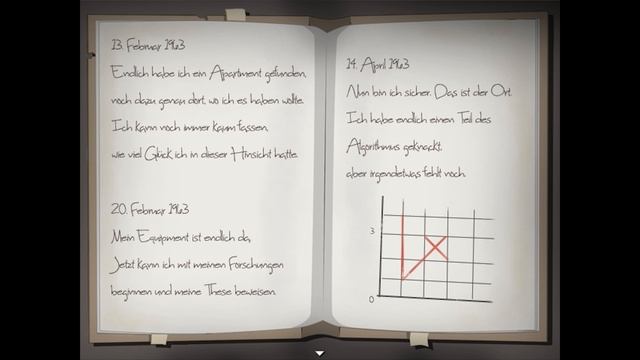 13. Februar 1963
Endlich habe ich ein Apartment gefunden,
noch dazu genau dort, wo ich es haben wollte.
Ich kann noch immer kaum fassen,
wie viel Glück ich in dieser Hinsicht hatte.
20. Februar 1963
Mein Equipment ist endlich da,
Jetzt kann ich mit meinen Forschungen
beginnen und meine These beweisen.
14. April 1963
Nun bin ich sicher. Das ist der Ort.
Ich habe endlich einen Teil des
Algorithmus geknackt,
aber irgendetwas fehlt noch.
3
0